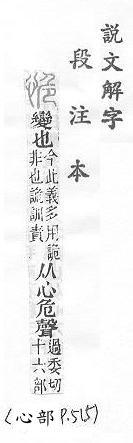 說文解字
段注本
恑 變也 今此義多用詭非也詭訓責 从心危聲 過委切十六部
(心部 P.515)